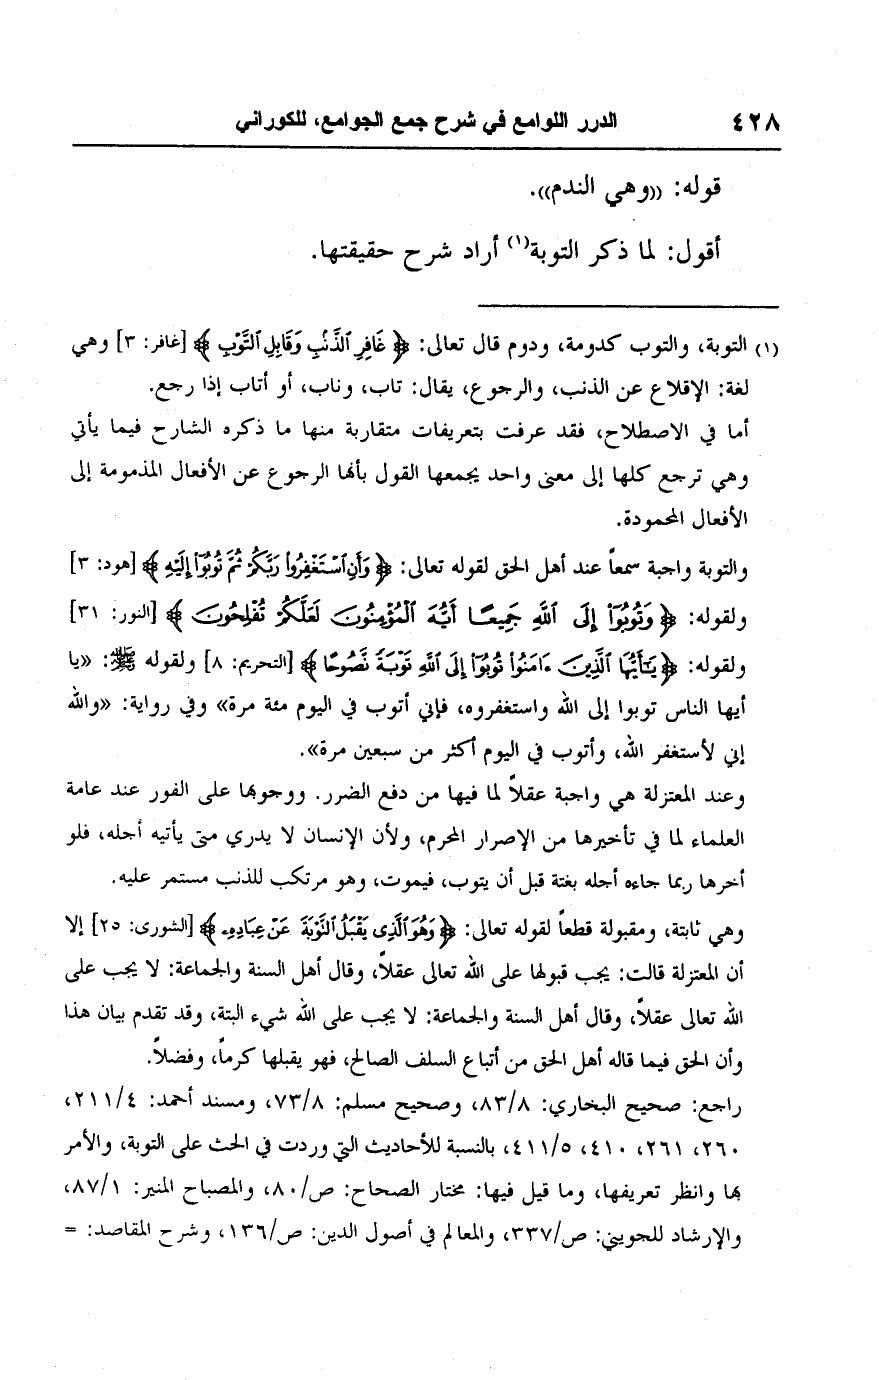 ٤٢٨ الدرر اللوامع في شرح جمع الجوامع، للكوراني
قوله: ((وهي الندم)).
أقول: لما ذكر التوبة(١) أراد شرح حقيقتها.
(١) التوبة، والتوب كدومة، ودوم قال تعالى: ﴿ غَافِرِ ٱلذَّنۢبِ وَقَابِلِ ٱلتَّوْبِ ﴾ [غافر: ٣] وهي
لغة: الإقلاع عن الذنب، والرجوع، يقال: تاب، وناب، أو أتاب إذا رجع.
أما في الاصطلاح، فقد عرفت بتعريفات متقاربة منها ما ذكره الشارح فيما يأتي
وهي ترجع كلها إلى معنى واحد يجمعها القول بأنها الرجوع عن الأفعال المذمومة إلى
الأفعال المحمودة.
والتوبة واجبة سمعاً عند أهل الحق لقوله تعالى: ﴿ وَأَنِ ٱسْتَغْفِرُوا۟ رَبَّكُمْ ثُمَّ تُوبُوٓا۟ إِلَيْهِ ﴾ [هود: ٣]
ولقوله: ﴿ وَتُوبُوٓا۟ إِلَى ٱللَّهِ جَمِيعًا أَيُّهَ ٱلْمُؤْمِنُونَ لَعَلَّكُمْ تُفْلِحُونَ ﴾ [النور: ٣١]
ولقوله: ﴿ يَـٰٓأَيُّهَا ٱلَّذِينَ ءَامَنُوا۟ تُوبُوٓا۟ إِلَى ٱللَّهِ تَوْبَةً نَّصُوحًا ﴾ [التحريم: ٨] ولقوله ﷺ: «يا
أيها الناس توبوا إلى الله واستغفروه، فإني أتوب في اليوم مئة مرة» وفي رواية: «والله
إني لأستغفر الله، وأتوب في اليوم أكثر من سبعين مرة».
وعند المعتزلة هي واجبة عقلاً لما فيها من دفع الضرر. ووجوبها على الفور عند عامة
العلماء لما في تأخيرها من الإصرار المحرم، ولأن الإنسان لا يدري متى يأتيه أجله، فلو
أخرها ربما جاءه أجله بغتة قبل أن يتوب، فيموت، وهو مرتكب للذنب مستمر عليه.
وهي ثابتة، ومقبولة قطعاً لقوله تعالى: ﴿ وَهُوَ ٱلَّذِى يَقْبَلُ ٱلتَّوْبَةَ عَنْ عِبَادِهِۦ ﴾ [الشورى: ٢٥] إلا
أن المعتزلة قالت: يجب قبولها على الله تعالى عقلاً، وقال أهل السنة والجماعة: لا يجب على
الله تعالى عقلاً، وقال أهل السنة والجماعة: لا يجب على الله شيء البتة، وقد تقدم بيان هذا
وأن الحق فيما قاله أهل الحق من أتباع السلف الصالح، فهو يقبلها كرماً، وفضلاً.
راجع: صحيح البخاري: ٨٣/٨، وصحيح مسلم: ٧٣/٨، ومسند أحمد: ٢١١/٤،
٢٦٠، ٢٦١، ٤١٠، ٤١١/٥، بالنسبة للأحاديث التي وردت في الحث على التوبة، والأمر
بها وانظر تعريفها، وما قيل فيها: مختار الصحاح: ص/٨٠، والمصباح المنير: ٨٧/١،
والإرشاد للجويني: ص/٣٣٧، والمعالم في أصول الدين: ص/١٣٦، وشرح المقاصد: =